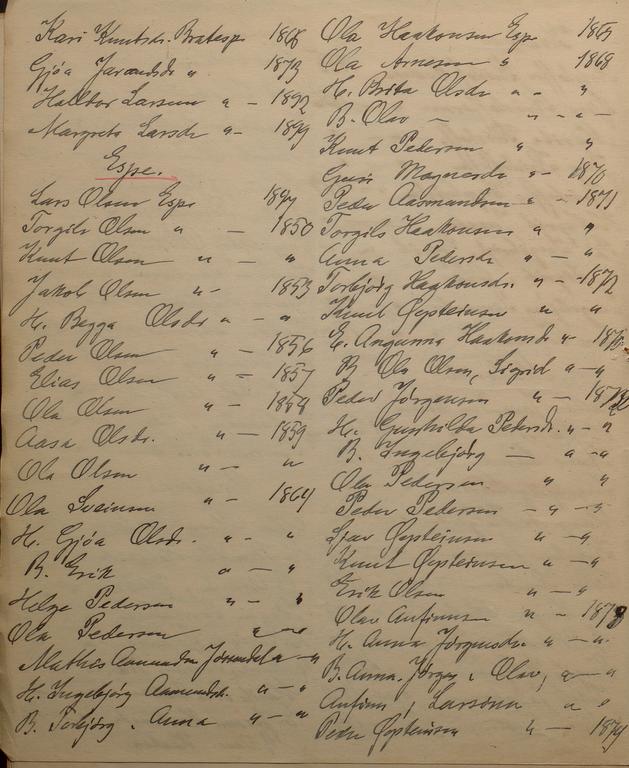 Kari Knutsdr. Bratespe 1868
Gjöa Jarandsdr " 1873
Halvor Larsen " – 1892
Margreta Larsdr " – 1899
Espe.
Lars Olsen Espe
Torgils Olsen " – 1850
Knut Olsen " – "
Jakob Olsen " – 1853
H. Begga Olsdr " – "
Peder Olsen " – 1856
Elias Olsen " – 1857
Ola Olsen " –
Aasa Olsdr. " – 1859
Ola Olsen " – "
Ola Sveinsen " – 1864
H. Gjöa Olsdr. " – "
B. Erik " – "
Helge Pedersen " – "
Ola Pedersen " – "
Mathis Aamundsen " – "
H. Ingebjörg Aamundsdr. " – "
B. Torbjörg, Anna " – "
Ola Haakonsen Espe
Ola Arnesen " 1868
H. Brita Olsdr " – "
B. Olav – " – " –
Knut Pedersen " "
Guri Magnesdr " – 1870
Peder Aamundsen " – 1871
Torgils Haakonsen " "
Anna Pedersdr " – "
Torbjörg Haakonsdr. " – 1872
Knut Öysteinsen " "
E. Anganna Haakonsdr " –
B. Ola Olsen, Sigrid " – "
Peder Jörgensen " –
H. Gunhilda Pedersdr. " – "
B. Ingebjörg – " – "
Ola Pedersen " "
Peder Pedersen – " – "
Öysteinsen " – "
Knut Öysteinsen " – "
Erik Olsen " – "
Olav Anfinnsen " – 1878
H. Anna Jörgensdr. " – "
B. Anna, Jörgen, Olav, " – "
Anfinn, Larsina " "
Peder Öysteinsen " – 1879